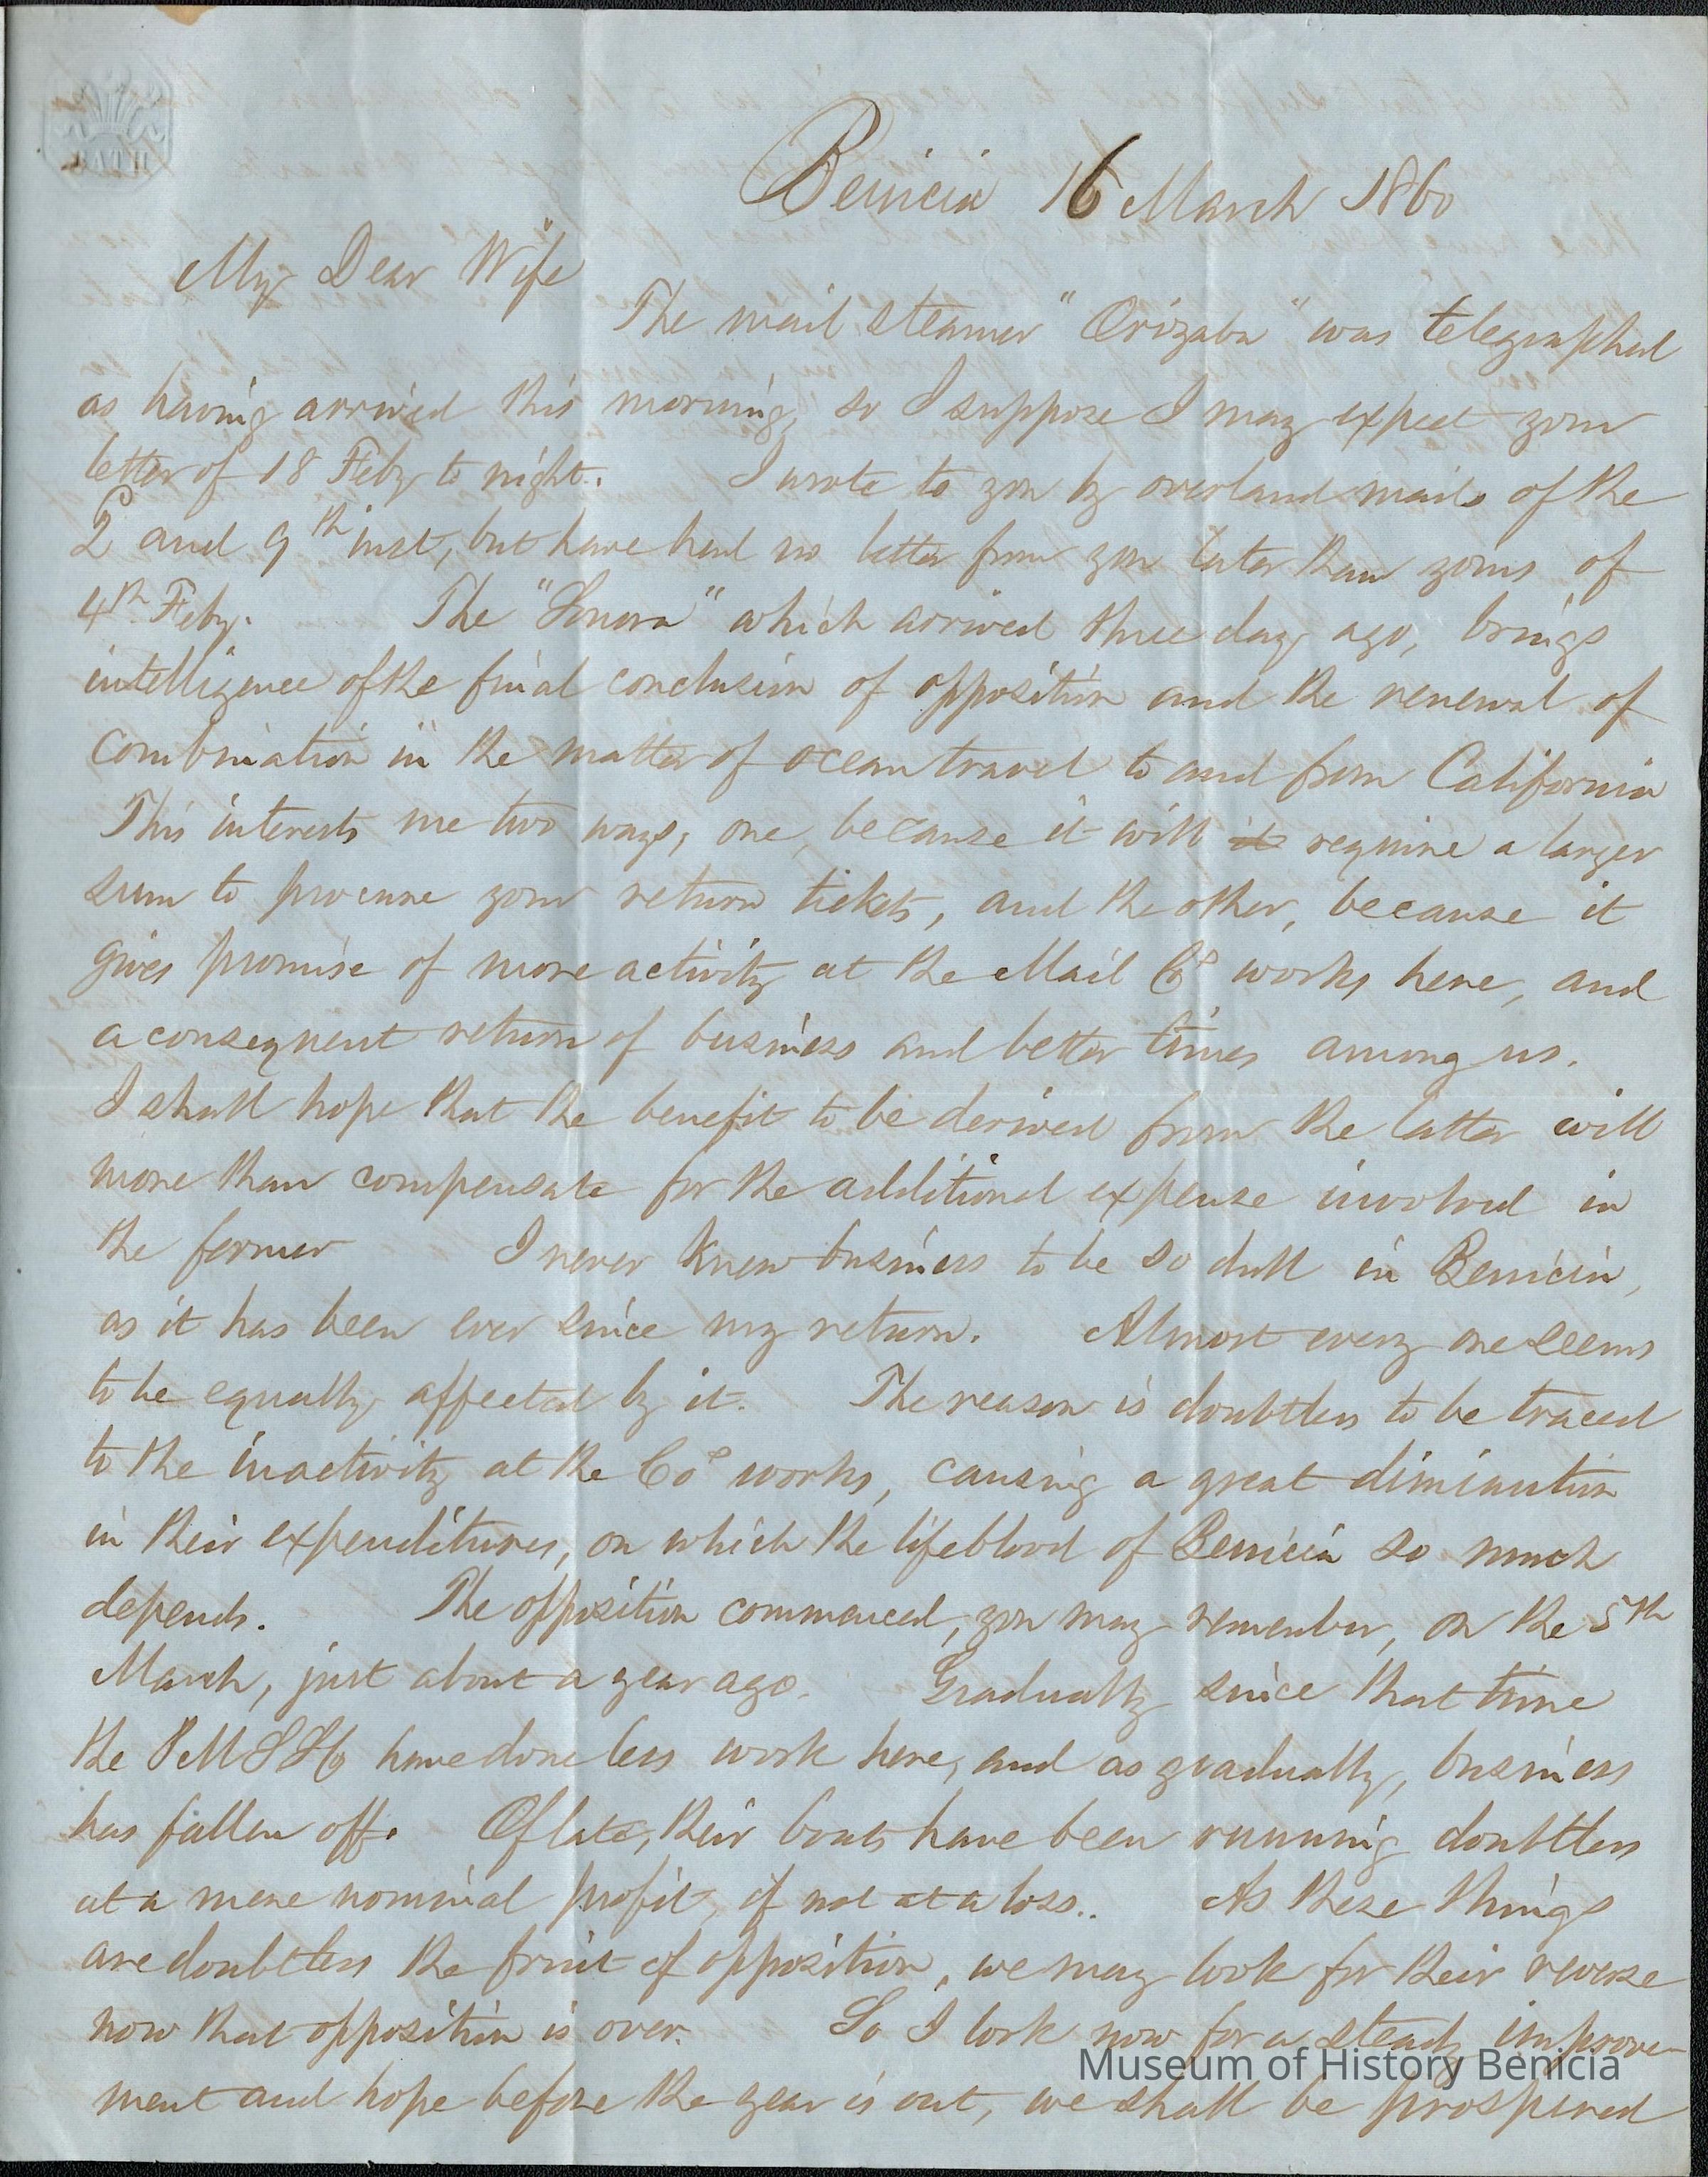 BATH
Benicia 16 March 1860
My Dear Wife
The mail steamer "Orizaba" was telegraphed
as having arrived this morning, so I suppose I may expect your
letter of 18 Feby to night. I wrote to you by overland mails of the
2d and 9th inst, but have had no letter from you later than yours of
4th Feby. The "Sonora" which arrived three days ago, brings
intelligence of the final conclusion of opposition and the renewal of
combination in the matter of ocean travel to and from California
This interests me two ways, one, because it will it require a larger
sum to procure your return tickets, and the other, because it
gives promise of more activity at the Mail Co's works here, and
a consequent return of business and better times among us.
I shall hope that the benefit to be derived from the latter will
more than compensate for the additional expense involved in
the former I never knew business to be so dull in Benicia,
as it has been ever since my return. Almost every one seems
to be equally affected by it. The reason is doubtless to be traced
to the inactivity at the Co's works, causing a great diminution
in their expenditures, on which the lifeblood of Benicia so much
depends. The opposition commenced, you may remember, on the 5th
March, just about a year ago. Gradually since that time
the PMSSCo have done less work here, and as gradually, business
has fallen off. Of late, their boats have been running doubtless
at a mere nominal profit, if not at a loss.. As these things
are doubtless the fruit of opposition, we may look for their reverse
now that opposition is over. So I look now for a steady improve-
ment and hope before the year is out, we shall be prospered
Museum of History Benicia